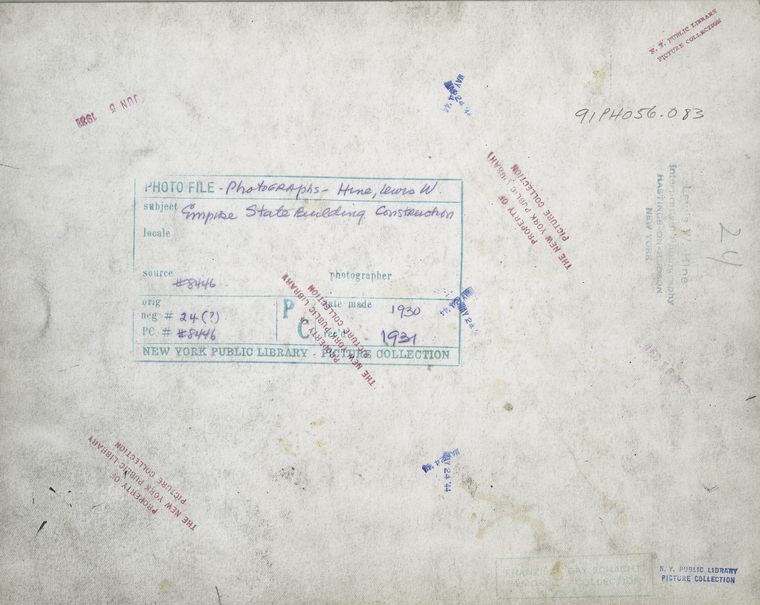 N. Y. PUBLIC LIBRARY
PICTURE COLLECTION
JUN 8 1931
MAY 24 '44
91PH056.083
PROPERTY OF
THE NEW YORK PUBLIC LIBRARY
PICTURE COLLECTION
Lewis W. Hine
Interpretive Photography
HASTINGS-ON-HUDSON
NEW YORK
24
PHOTO FILE - Photographs - Hine, Lewis W.
subject Empire State Building Construction
locale
source #8446
photographer
orig
neg # 24 (?)
PC # #8446
PC
date made 1930
rec'd 1931
NEW YORK PUBLIC LIBRARY - PICTURE COLLECTION
PROPERTY OF
THE NEW YORK PUBLIC LIBRARY
PICTURE COLLECTION
MAY 24 '44
MAY 24 '44
PROPERTY OF
THE NEW YORK PUBLIC LIBRARY
PICTURE COLLECTION
COLLECTION
N. Y. PUBLIC LIBRARY
PICTURE COLLECTION